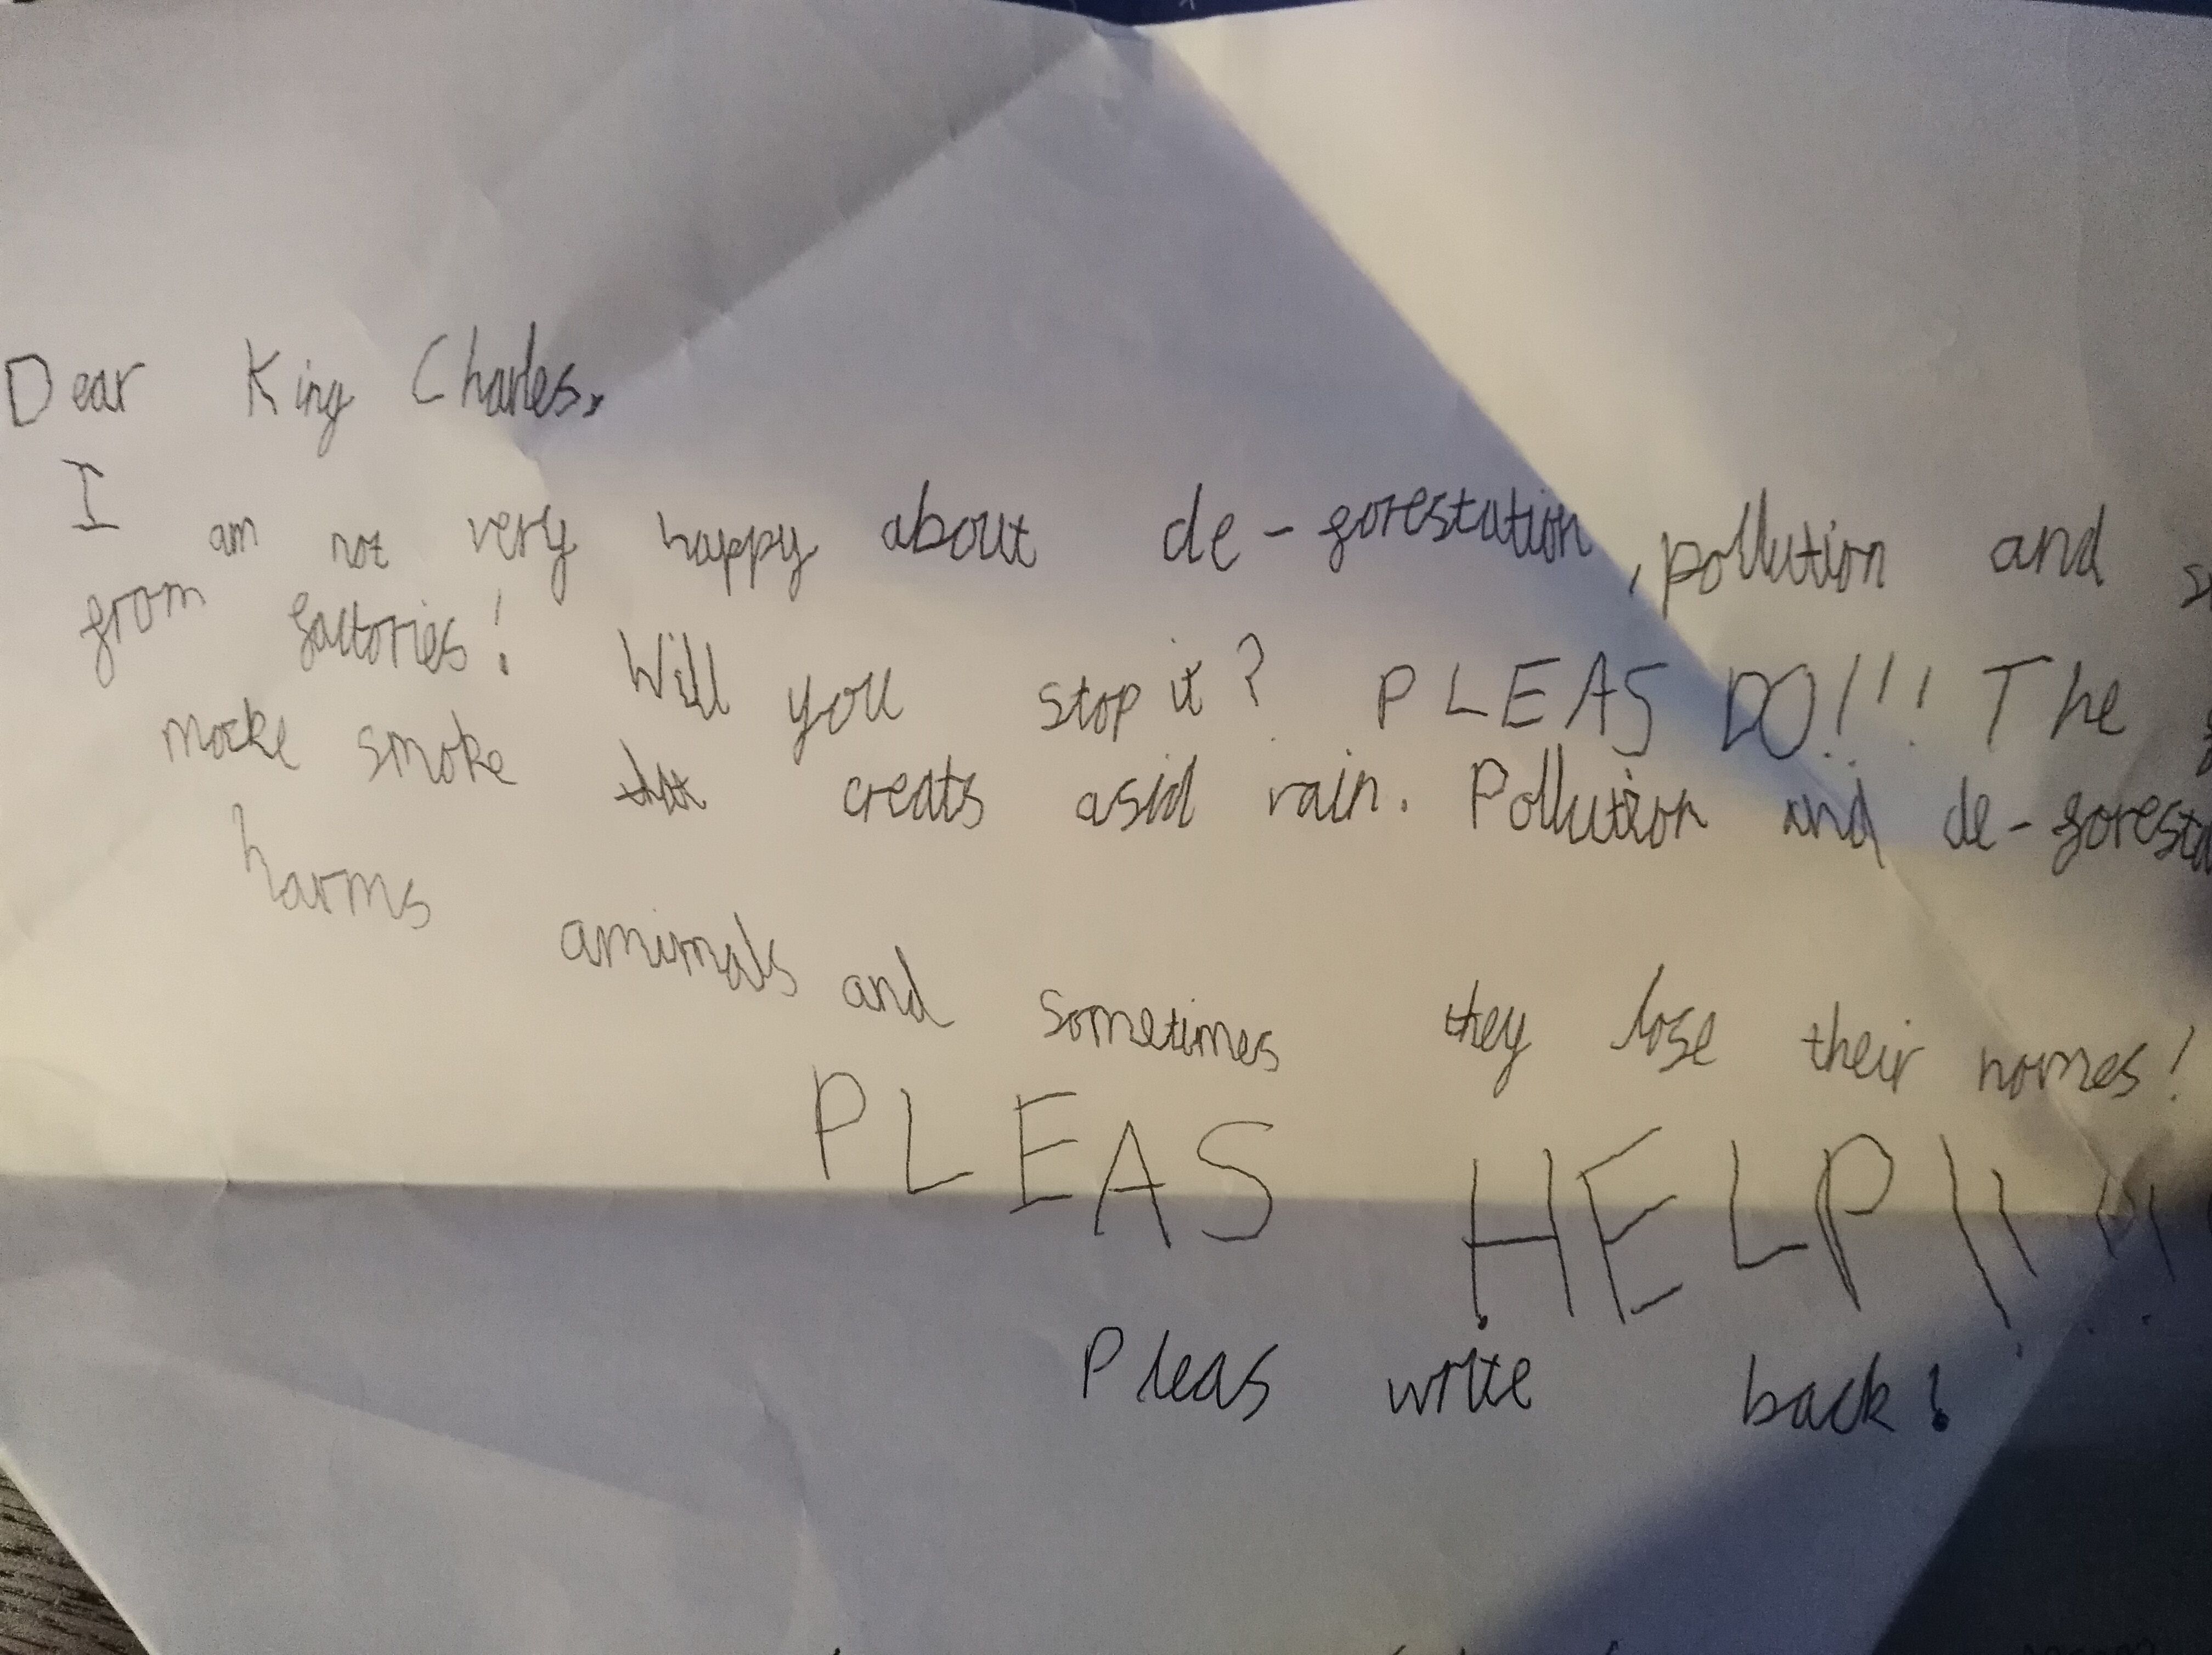 Dear King Charles,
I am not very happy about de-forestation, pollution and
from factories! Will you stop it? PLEAS DO!!! The
make smoke that creats asid rain. Pollution and de-foresta
harms amimals and sometimes they lose their homes!
PLEAS HELP!!!!
Pleas write back!